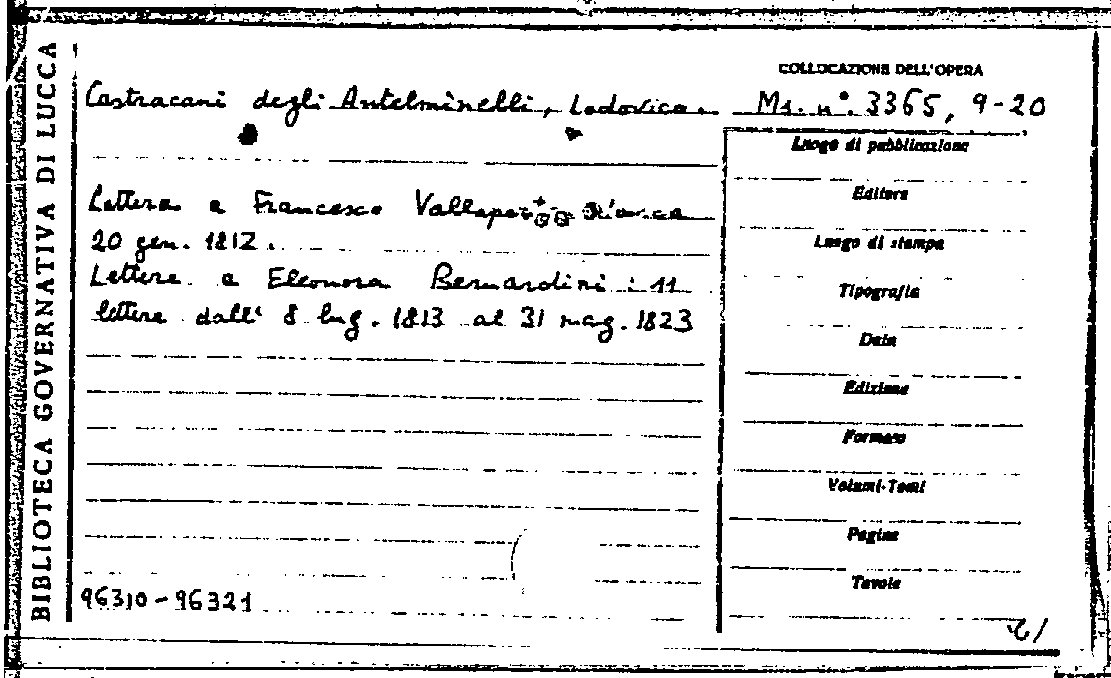 BIBLIOTECA GOVERNATIVA DI LUCCA
COLLOCAZIONE DELL'OPERA
Castracani degli Antelminelli, Lodovica. Ms. n°. 3365, 9-20
Lettera a Francesco
20 gen. 1812.
Lettere a Eleonora Bernardini: 11
lettere dall' 8 lug. 1813 al 31 mag. 1823
96310-96321
Luogo di pubblicazione
Editore
Luogo di stampa
Tipografia
Data
Edizione
Formato
Volumi-Tomi
Pagine
Tavole